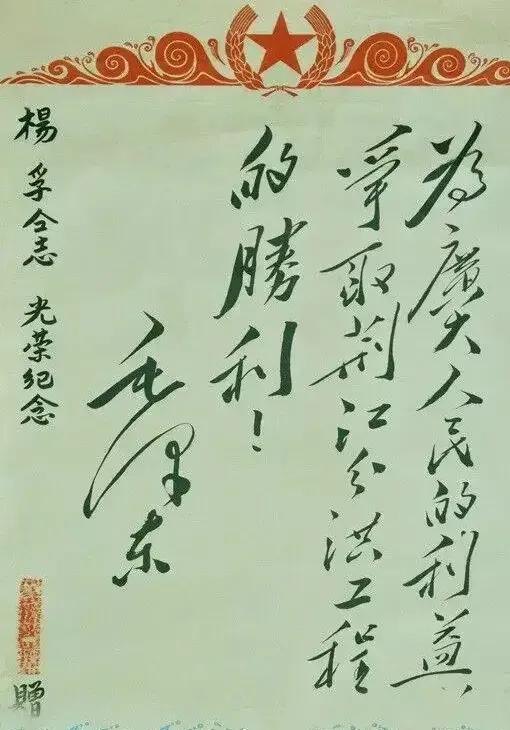 為廣大人民的利益
爭取荆江分洪工程
的勝利！
毛泽东
楊孚仝志 光荣纪念
贈